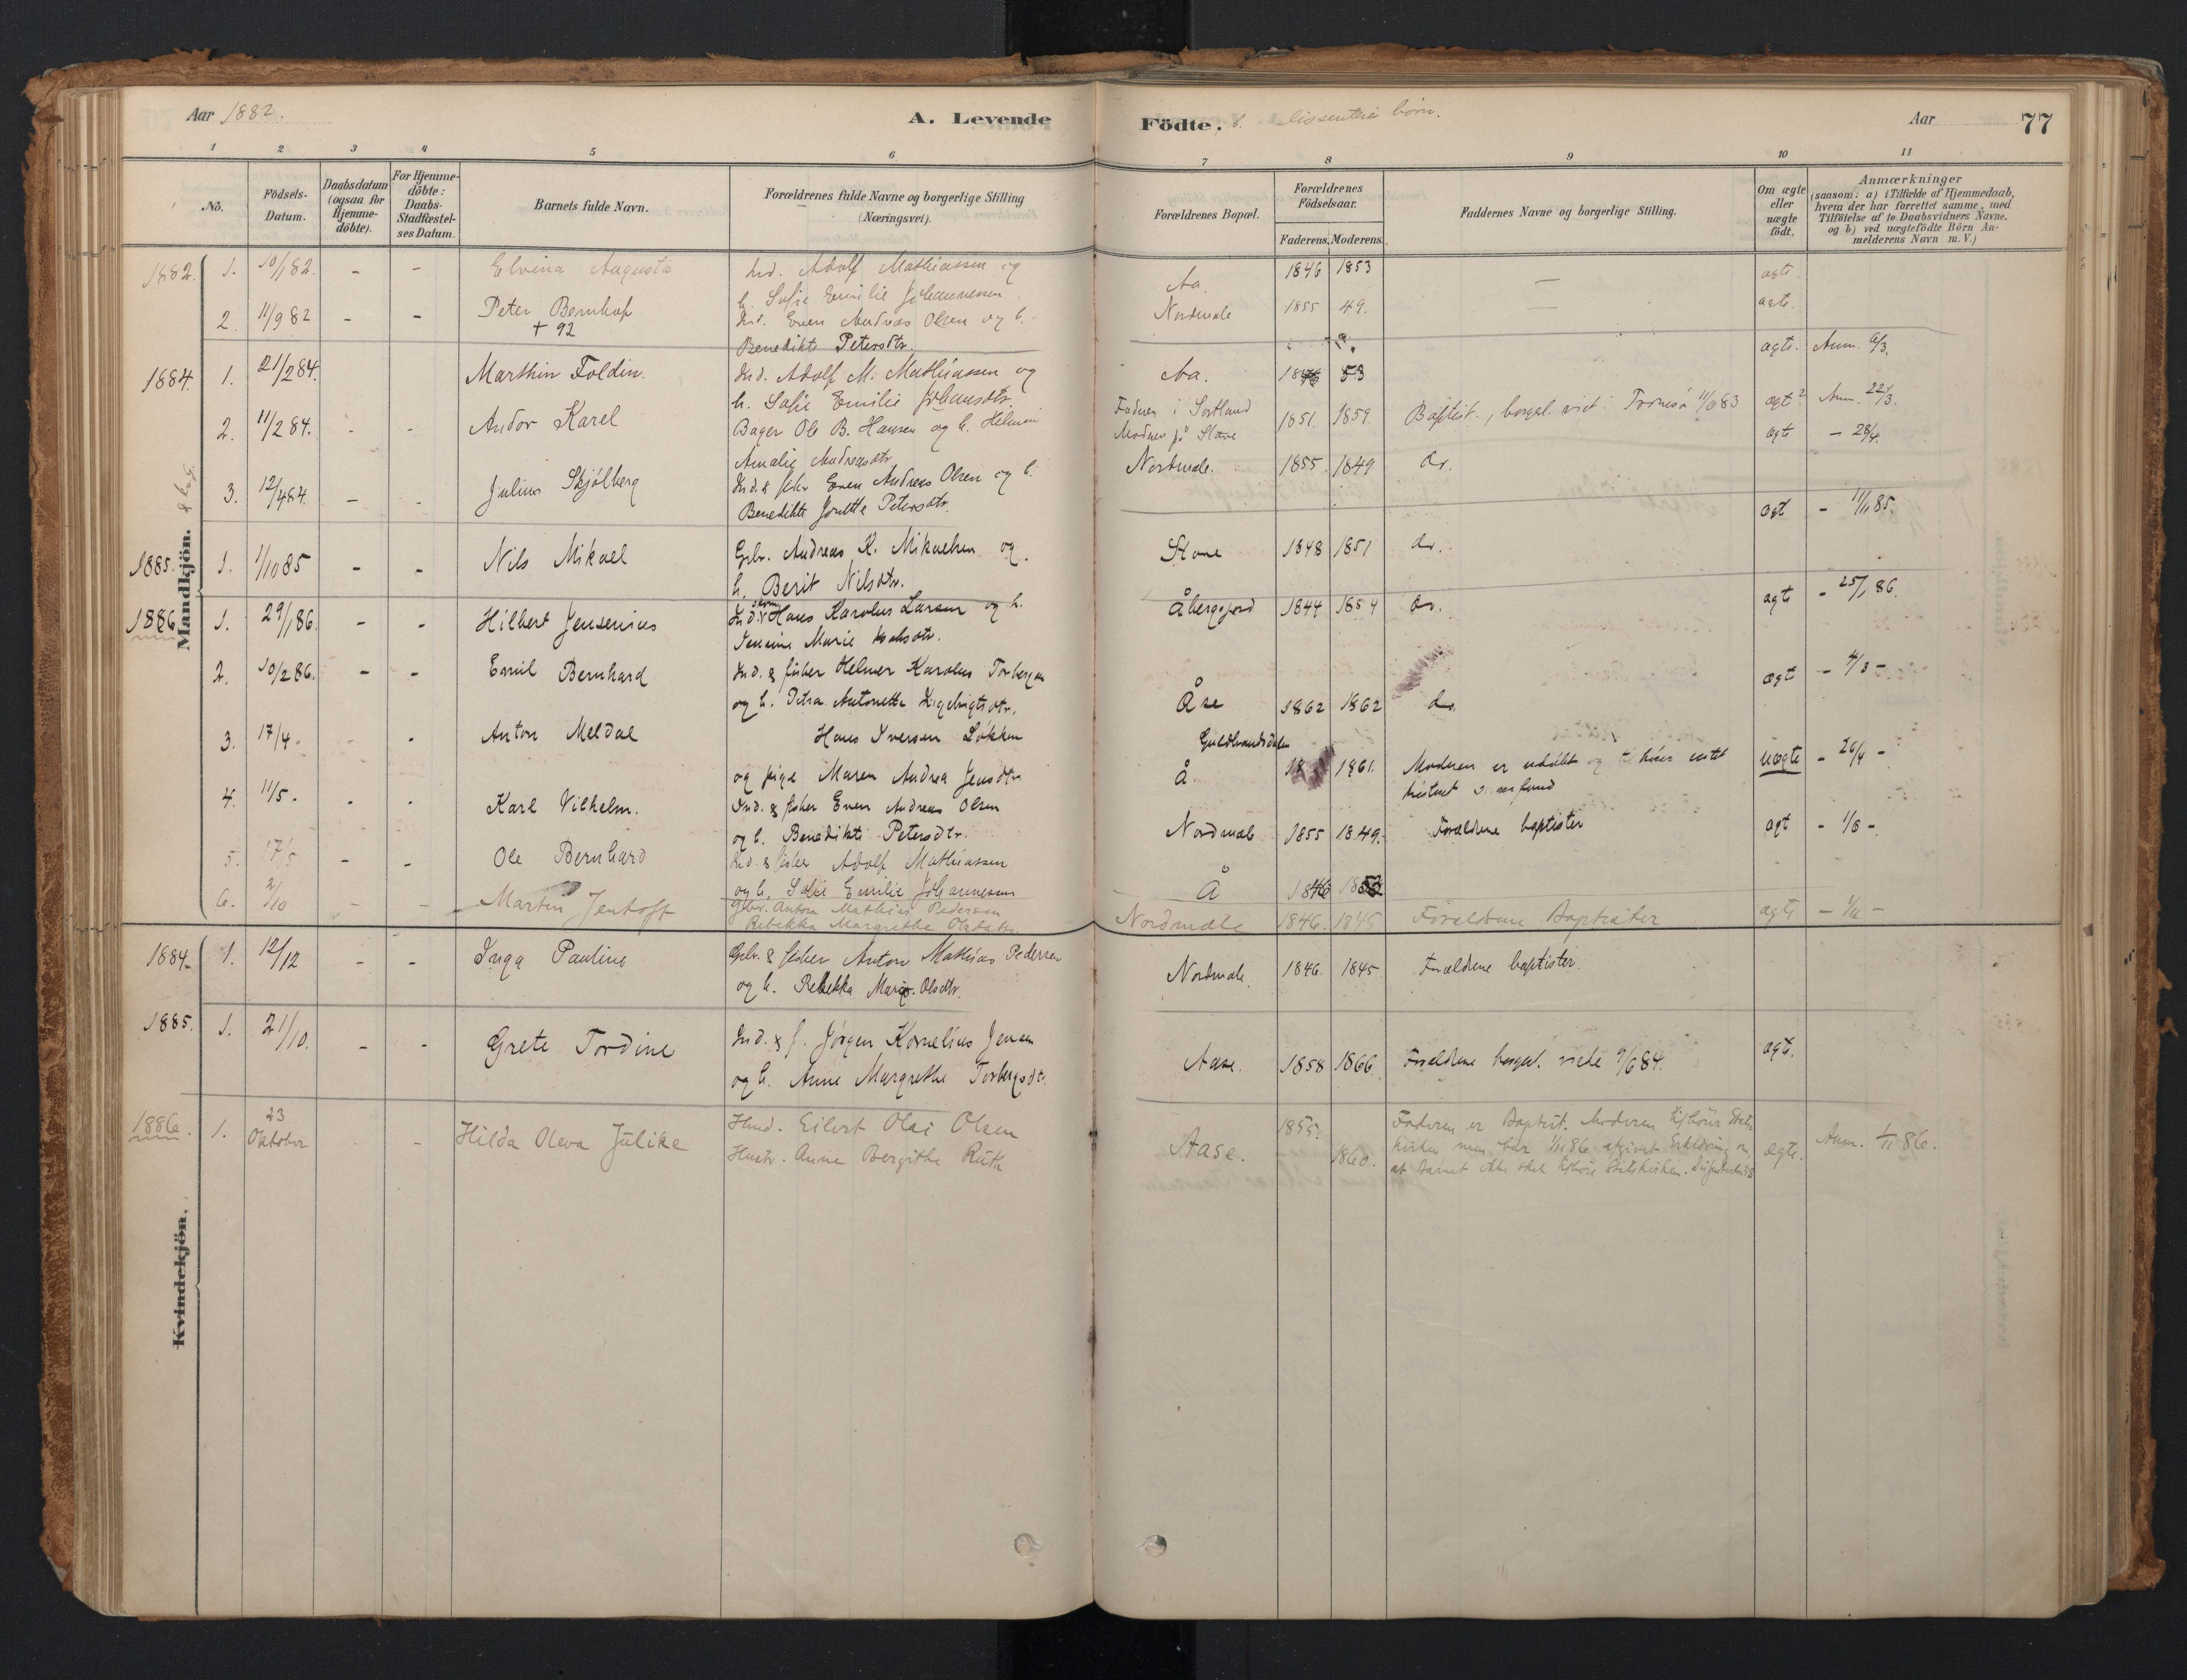 Aar 1882.
A. Levende
Födte.
børn.
Aar
77
1 2 3 4 5 6 7 8 9 10 11
No.
Födsels-Datum.
Daabsdatum (ogsaa for Hjemme-döbte).
For Hjemme-döbte: Daabs-Stadfæstel-ses Datum.
Barnets fulde Navn.
Forældrenes fulde Navne og borgerlige Stilling (Næringsvei).
Forældrenes Bopæl.
Forældrenes Födselsaar.
Faderens. Moderens.
Faddernes Navne og borgerlige Stilling.
Om ægte eller uægte födt.
Anmærkninger (saasom: a) i Tilfælde af Hjemmedaab, hvem der har forrettet samme, med Tilföielse af to Daabsvidners Navne. og b) ved uægtefödte Börn An-melderens Navn m. V.)
Mandkjön.
1882. 1. 10/1 82. - - Elvina Augusta Ind. Adolf Mathiassen og Aa. 1846 1853 — ægte.
h. Sofie Emilie Johannessen
2. 11/9 82 - - Peter Bernhof Ind. Even Andreas Olsen og h. Nordmele 1855 49. — ægte.
+ 92 Benedikte Petersdtr.
1884. 1. 21/2 84. Marthin Foldin. Ind. Adolf M. Mathiassen og Aa. 1846 53 ægte. Anm. 6/3.
h. Sofie Emilie Johansdtr.
2. 11/2 84. - - Andor Karel Bager Ole B. Hansen og h. Faderen i Sortland 1851. 1859. Baptist., borgel. viet i Tromsø 11/6 83 ægt? Anm. 22/3.
Amalie Andreasdtr. Moderen på Stave
3. 12/4 84. - - Julius Skjölberg Ind. & fisker Even Andreas Olsen og h. Nordmele. 1855. 1849 do. ægte - 28/4.
Benedikte Petersdtr.
1885. 1. 1/10 85 - - Nils Mikael Gbr. Andreas K. Mikaelsen og Stave 1848 1851 do. ægt - 11/11 85.
h. Berit Nilsdtr.
1886 1. 29/1 86. - - Hilbert Jensenius Hans Karolus Larsen og h. Åbergsjord 1844 1854 do. ægt - 25/1 86.
Jensine Marie
2. 10/2 86. - - Emil Bernhard Ind. & fisker Helmer Karolus Torbergsen Åse 1862 1862 do. ægt - 4/3 -
og h. Petra Antonette
3. 17/4 - - Anton Meldal Hans Iversen Løkken Guldbrandsdalen
og pige Maren Andrea Jensdtr. Å. 18 1861. Moderen er udöbt og tilhører uægte - 26/4 -
4. 11/5 - - - Karl Vilhelm. Ind. & fisker Even Andreas Olsen
og h. Benedikte Petersdtr. Nordmele 1855 1849. Forældrene baptister ægt - 1/6 -
5. 17/5 - - Ole Bernhard Ind. & fisker Adolf Mathiassen
og h. Sofie Emilie Johannessen Å 1846 1853
6. 2/10 - - Martin Jentoft Gbr. Anton Mathias Pedersen
Rebekka Margrethe Olsdatter Nordmele 1846. 1845 Forældrene Baptister ægte - 1/11 -
Kvindekjön.
1884. 1. 12/12 - - Inga Pauline Gbr. & fisker Anton Mathias Pedersen
og h. Rebekka Marg. Olsdtr. Nordmele. 1846. 1845 Forældrene baptister.
1885. 1. 21/10. - - Grete Tordine Ind. & f. Jørgen Kornelius Jensen
og h. Anne Margrethe Torbergsdtr. Aase. 1858 1866 Forældrene borgel. viede 9/6 84. ægte.
1886. 1. 23 Oktober - Hilda Oleva Julike Hmd. Eilert Olai Olsen
Hustr. Anne Bergithe Ruth Aase. 1855. 1860. Faderen er Baptist. Moderen tilhører Stats-
kirken men har 1/11 86 afgivet Erklæring om ægte. Anm. 1/11 86.
at Barnet ikke skal tilhøre Statskirken.